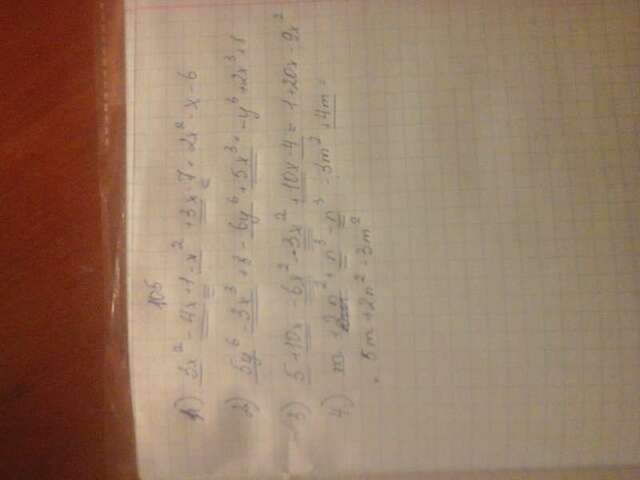 105
1) 3x² - 4x + 1 - x² + 3x - 7 = 2x² - x - 6
2) 5y⁶ - 3x³ + 8 - 6y⁶ + 5x³ = -y⁶ + 2x³ + 8
3) 5 + 10x - 6x² - 3x² + 10x - 4 = 1 + 20x - 9x²
4) m + 2n² + n³ - n³ - 3m² + 4m =
= 5m + 2n² - 3m²